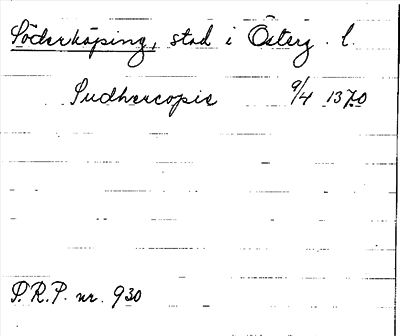 Söderköping, stad i Österg. l.
Sudhercopie 9/4 1370
P.R.P. nr. 930